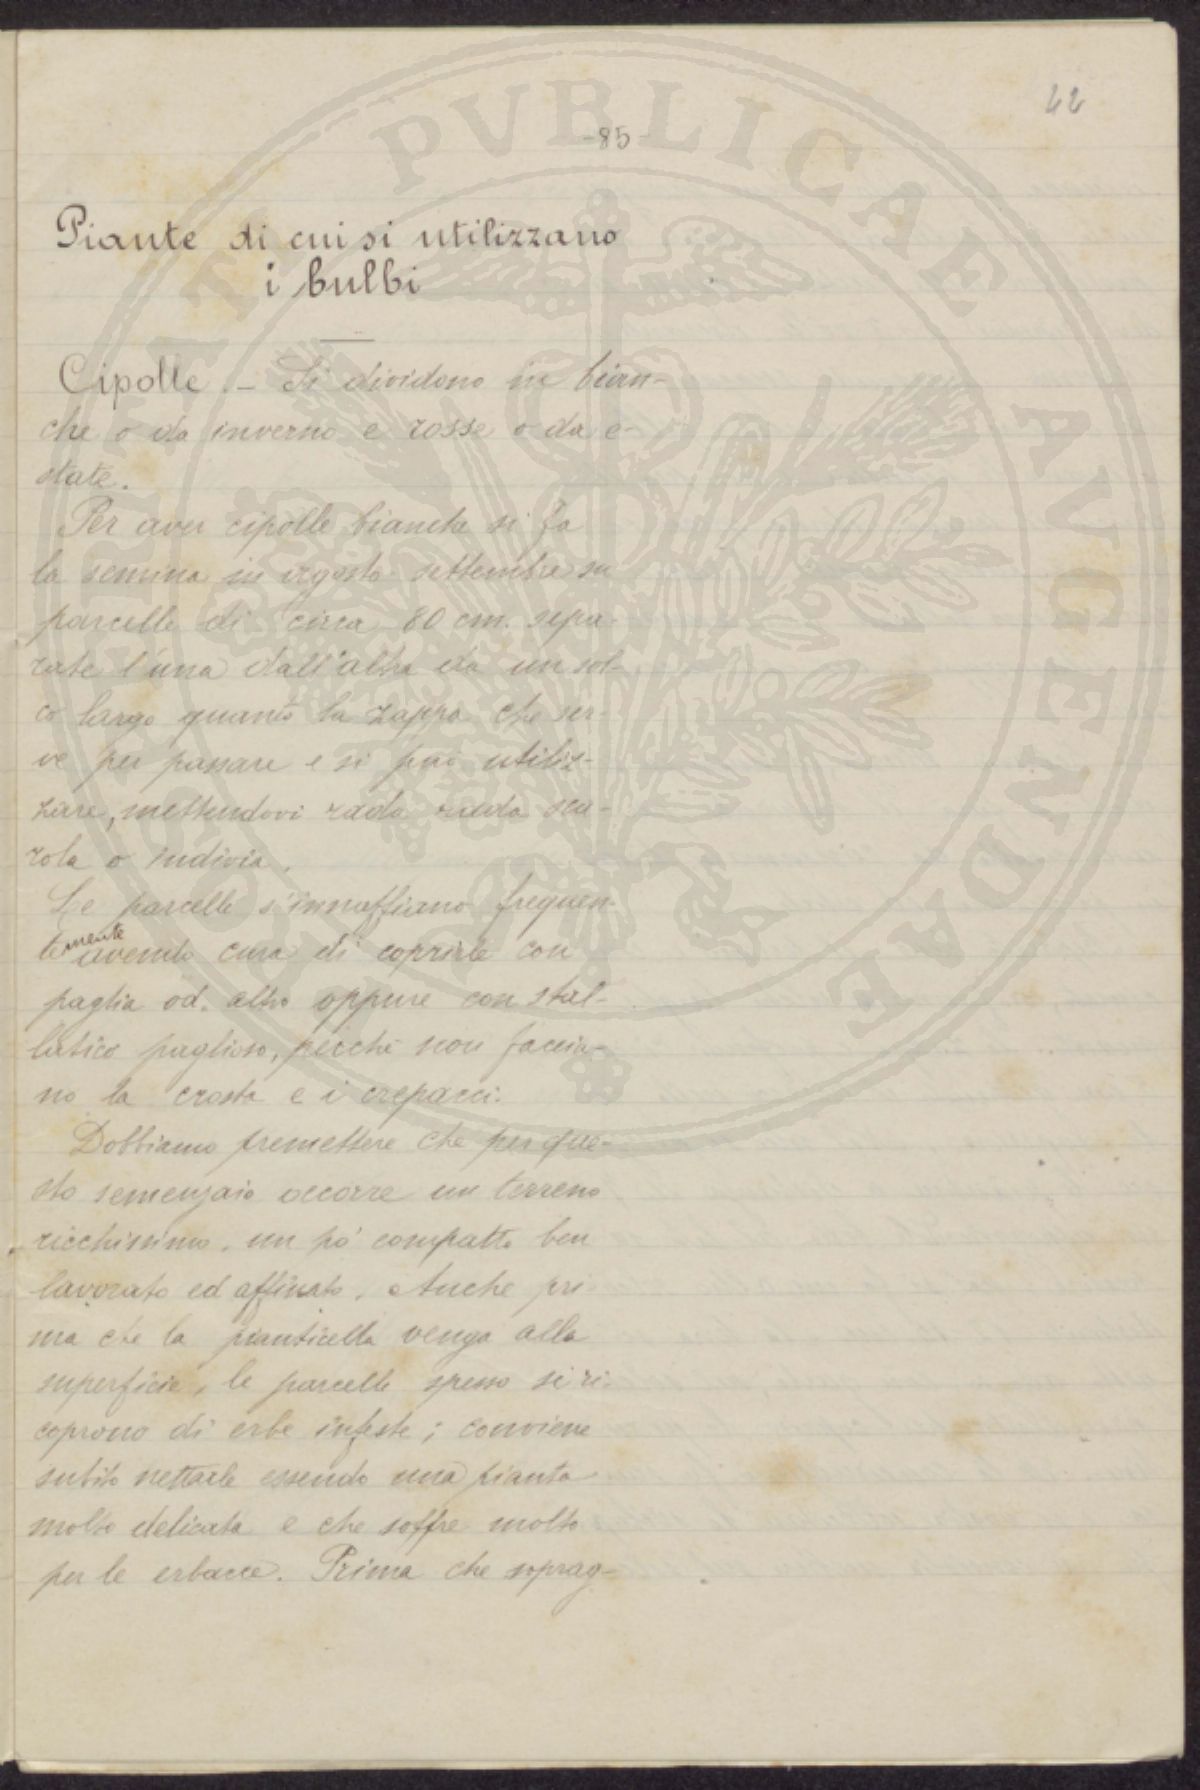 22
-85-
Piante di cui si utilizzano
i bulbi
Cipolle. - Si dividono in bian-
che o da inverno e rosse o da e-
state.
Per aver cipolle bianche si fa
la semina in agosto settembre su
parcelle di circa 80 cm. sepa-
rate l'una dall'altra da un sol-
co largo quanto la zappa che ser-
ve per passare e si può utiliz-
zare, mettendovi rada rada sca-
rola o indivia.
Le parcelle s'innaffiano frequen-
temente avendo cura di coprirle con
paglia od altro oppure con stal-
latico paglioso, perchè non faccia-
no la crosta e i crepacci.
Dobbiamo premettere che per que-
sto semenzaio occorre un terreno
ricchissimo, un pò compatto ben
lavorato ed affinato. Anche pri-
ma che la pianticella venga alla
superficie, le parcelle spesso si ri-
coprono di erbe infeste; conviene
subito nettarle essendo una pianta
molto delicata e che soffre molto
per le erbacce. Prima che soprag-
PUBLICAE AUGENDAE